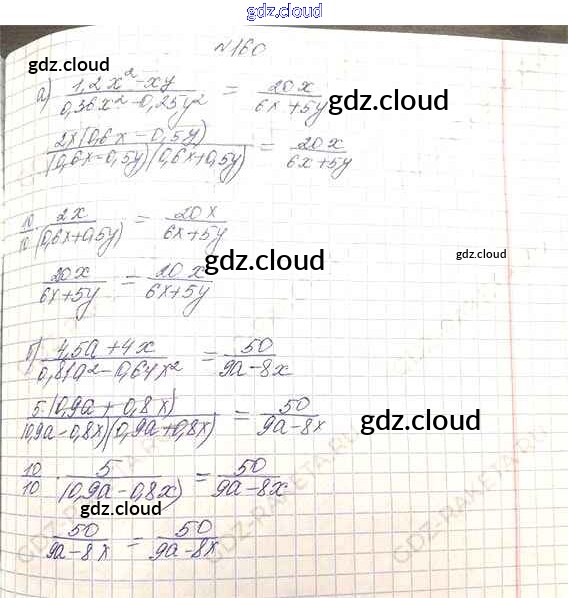 gdz.cloud
№160
gdz.cloud
gdz.cloud
а) (1,2x² - xy)/(0,36x² - 0,25y²) = 20x/(6x + 5y)
gdz.cloud
2x(0,6x - 0,5y)/((0,6x - 0,5y)(0,6x + 0,5y)) = 20x/(6x + 5y)
10/10 · 2x/(0,6x + 0,5y) = 20x/(6x + 5y)
gdz.cloud
20x/(6x + 5y) = 20x/(6x + 5y)
б) (4,5a + 4x)/(0,81a² - 0,64x²) = 50/(9a - 8x)
5(0,9a + 0,8x)/((0,9a - 0,8x)(0,9a + 0,8x)) = 50/(9a - 8x)
gdz.cloud
10/10 · 5/(0,9a - 0,8x) = 50/(9a - 8x)
gdz.cloud
50/(9a - 8x) = 50/(9a - 8x)
GDZ-RAKETA.RU
gdz.cloud